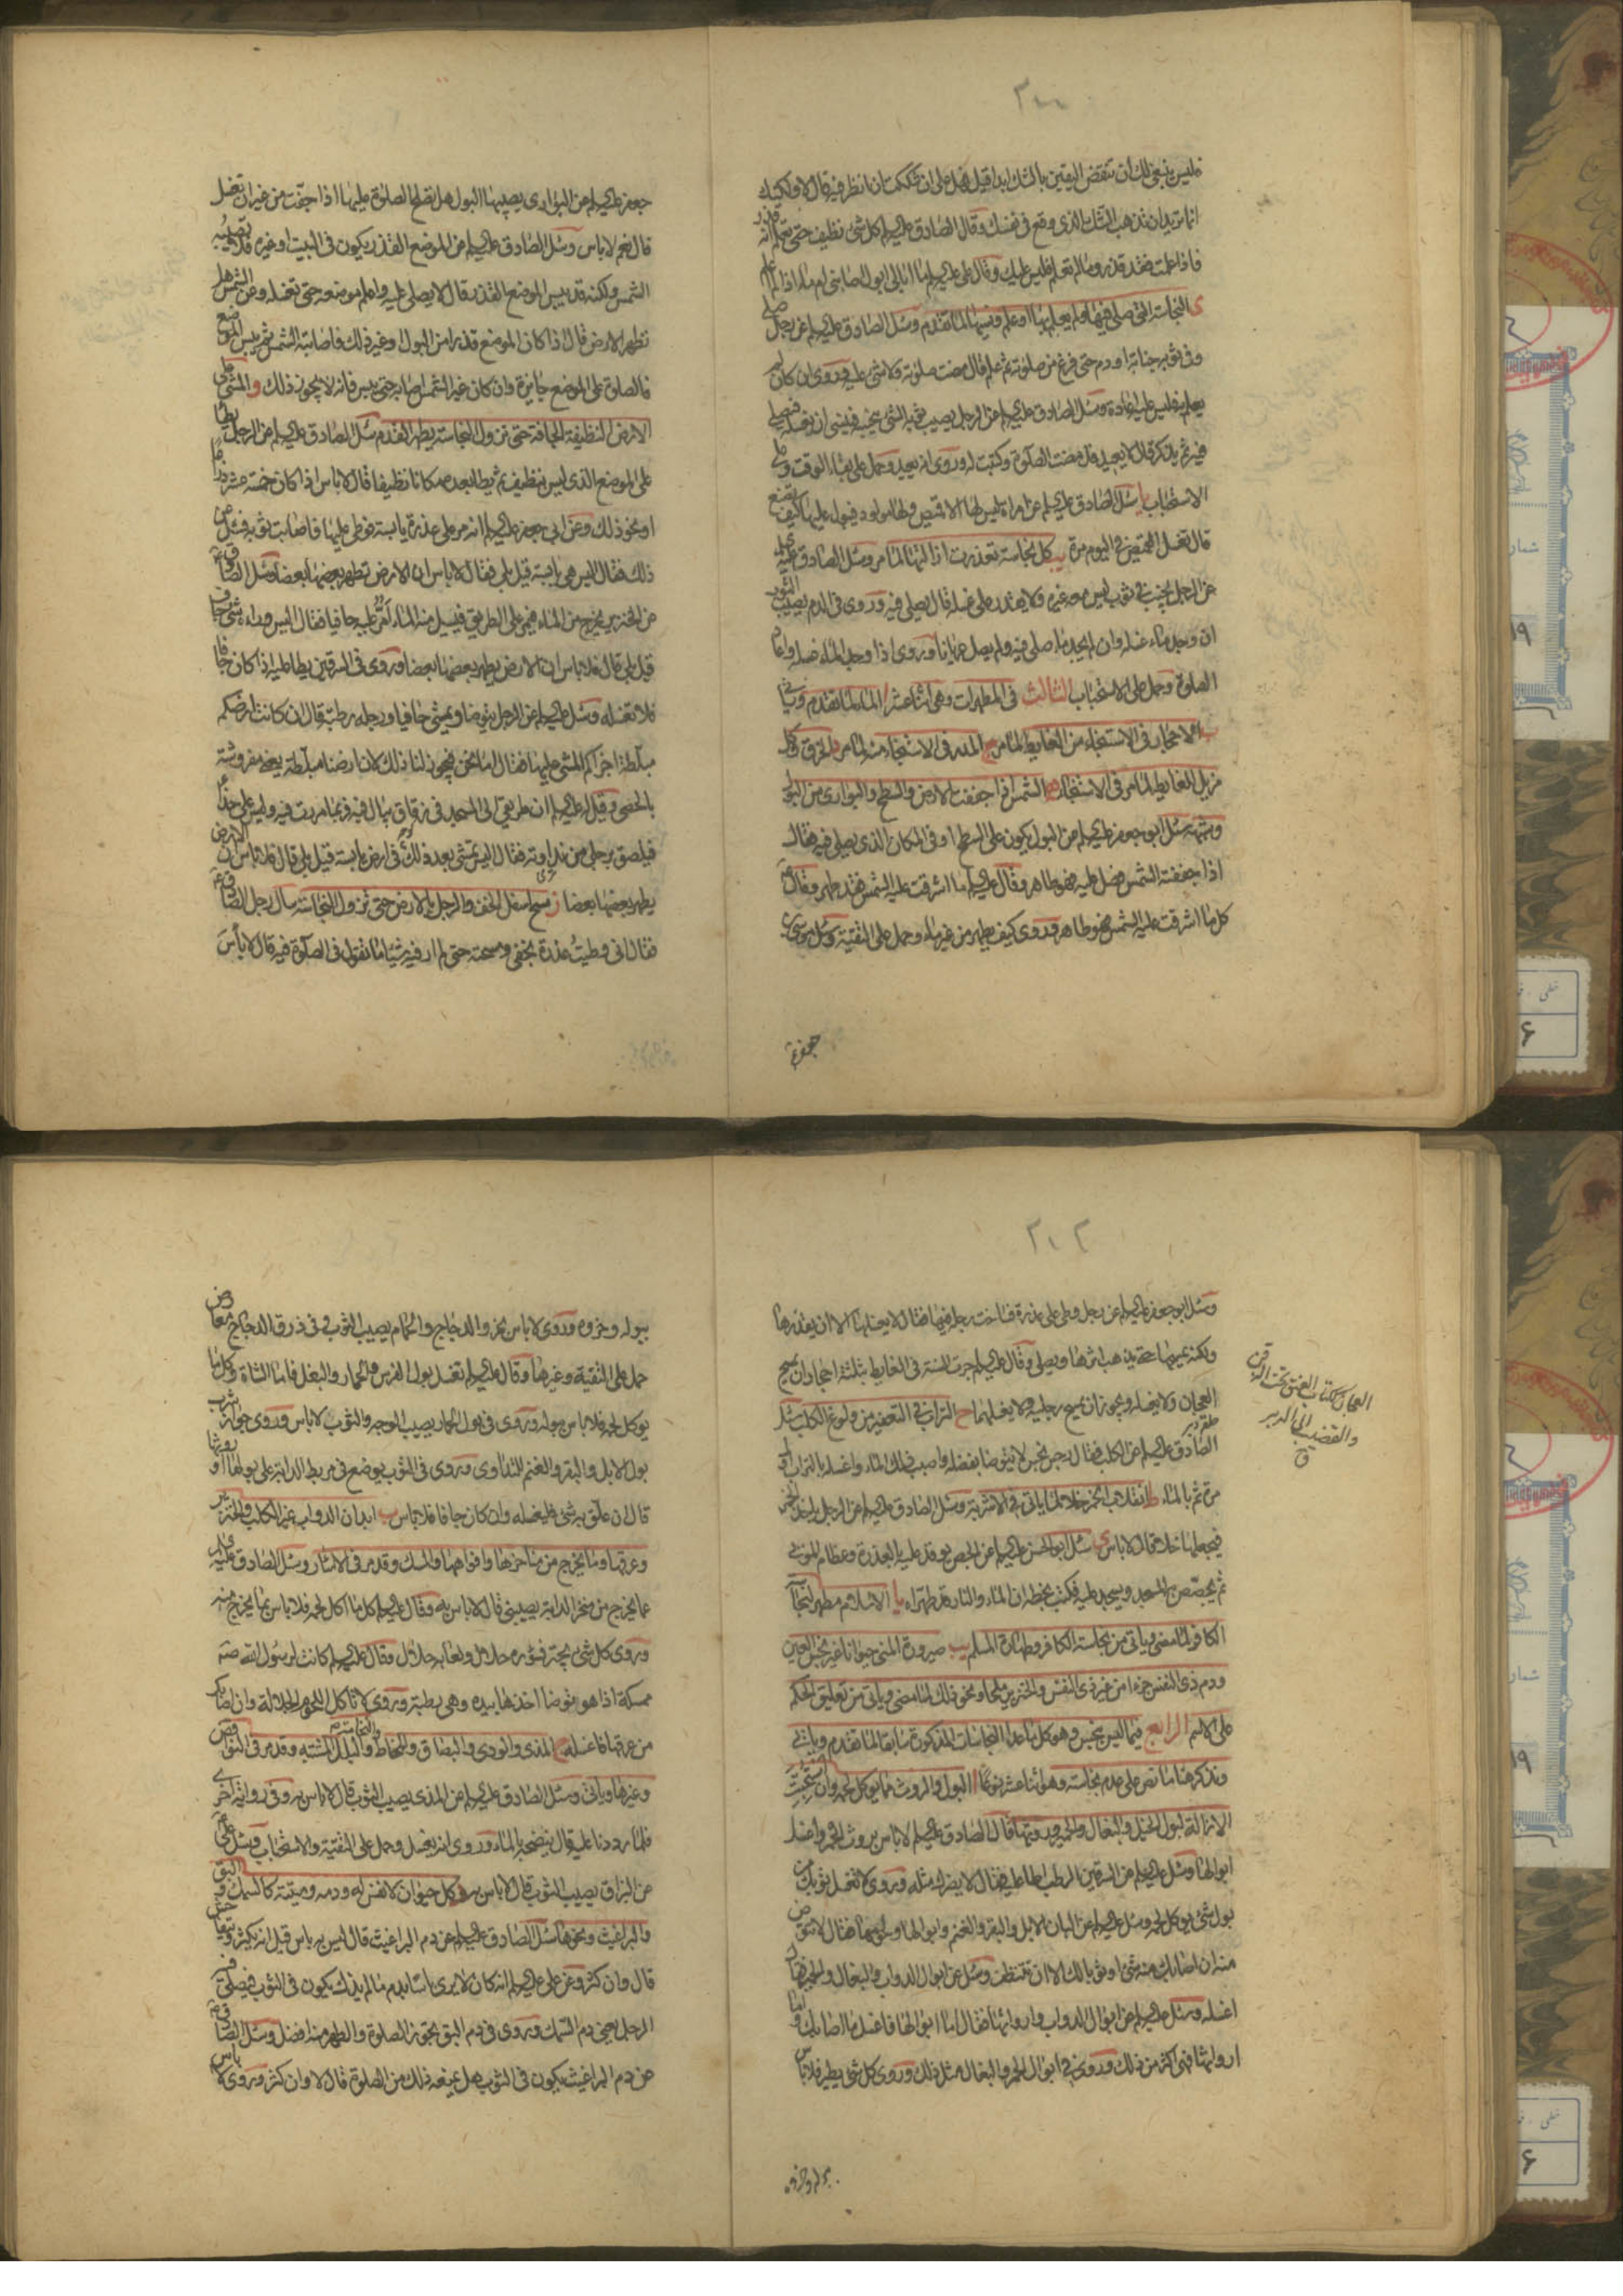 فليس ينبغي لك ان تنقض اليقين بالشك ابدا قيل فهل علي ان شككت ان انظر فيه قال لا ولكنك
انما تريد ان تذهب الشك الذي وقع في نفسك وقال الصادق عليه السلام كل شئ نظيف حتى تعلم انه قذر
فاذا علمت فقد قذر وما لم تعلم فليس عليك وقال علي عليه السلام ما ابالي ابول اصابني ام ماء اذا لم اعلم
ى النجاسة التي صلي فيها ولم يعلم بها او علم ونسيها لما تقدم وسئل الصادق عليه السلام عن رجل صلى
وفي ثوبه جنابة او دم حتى فرغ من صلوته ثم علم قال مضت صلوته ولا شئ عليه وروى ان كان لم
يعلم فليس عليه اعادة وسئل الصادق عليه السلام عن الرجل يصيب ثوبه الشئ ينجسه فينسى ان يغسله فيصلي
فيه ثم يذكر قال لا يعيد قد مضت الصلوة وكتبت له وروى انه يعيد وحمل على بقاء الوقت وعلى
الاستحباب يا سئل الصادق عليه السلام عن امراة ليس لها الا قميص ولها مولود فيبول عليها كيف تصنع
قال تغسل القميص في اليوم مرة يب كل نجاسة تعذرت ازالتها لما مر وسئل الصادق عليه السلم
عن الرجل يجنب في ثوب ليس معه غيره ولا يقدر على غسله قال يصلي فيه وروى في الدم يصيب الثوب
ان وجد ماء غسله وان لم يجد ماء صلى فيه ولم يصل عريانا وروى اذا وجد الماء غسله واعاد
الصلوة وحمل على الاستحباب الثالث في المطهرات وهي اثنا عشر ا الماء لما تقدم وياتي
ب الاحجار في الاستنجاء من الغايط لما مر ج المدر في الاستنجاء منه لما مر د الخرق وكل
مزيل للغايط لما مر في الاستنجاء ه الشمس اذا جففت الارض والسطح والبواري من البول
وشبهه سئل ابو جعفر عليه السلام عن البول يكون على السطح او في المكان الذي يصلي فيه فقال
اذا جففته الشمس فصل عليه فهو طاهر وقال عليه السلام ما اشرقت عليه الشمس فقد طهر وقال
كل ما اشرقت عليه الشمس فهو طاهر وروى كيف يطهر من غير ماء وحمل على التقية وسئل موسى بن
جعفر
جعفر عليه السلام عن البواري يصيبها البول هل تصلح الصلوة عليها اذا جفت من غير ان تغسل
قال نعم لا باس وسئل الصادق عليه السلام عن الموضع القذر يكون في البيت او غيره فلا تصيبه
الشمس ولكنه قد يبس الموضع القذر قال لا يصلي عليه واعلم موضعه حتى تغسله وعن الشمس هل
تطهر الارض قال اذا كان الموضع قذرا من البول او غير ذلك فاصابته الشمس ثم يبس الموضع
فالصلوة على الموضع جايزة وان كان غير الشمس اصابه حتى يبس فانه لا يجوز ذلك و المشي على
الارض النظيفة الجافة حتى تزول النجاسة يطهر القدم سئل الصادق عليه السلام عن الرجل يطا
على الموضع الذي ليس بنظيف ثم يطا بعده مكانا نظيفا قال لا باس اذا كان خمسة عشر ذراعا
او نحو ذلك وعن ابي جعفر عليه السلام انه مر على عذرة يابسة فوطي عليها فاصابت ثوبه فسئل عن
ذلك فقال اليس هي يابسة قيل بلى فقال لا باس ان الارض تطهر بعضها بعضا وسئل الصادق
عن الخنزير يخرج من الماء فيمر على الطريق فيسيل منه الماء امر عليه حافيا فقال اليس وراءه شئ جاف
قيل بلى قال فلا باس ان الارض يطهر بعضها بعضا وروى في السرقين يطا عليه اذا كان جافا
فلا تغسله وسئل عليه السلام عن الرجل يتوضا ويمشي حافيا ورجله رطبة قال ان كانت ارضكم
مبلطة اجزاكم المشي عليها فقال اما نحن فيجوز لنا ذلك لان ارضنا مبلطة يعني مفروشة
بالحصى وقيل له عليه السلام ان طريقي الى المسجد في زقاق يبال فيه فربما مررت فيه وليس علي حذاء
فيلصق برجلي من نداوته فقال اليس تمشي بعد ذلك في ارض يابسة قيل بلى قال فلا باس ان الارض
يطهر بعضها بعضا ز مسح اسفل الخف والرجل بالارض حتى تزول النجاسة سال رجل الصادق
فقال اني وطيت عذرة بخفي ومسحته حتى لم ار فيه شيئا ما تقول في الصلوة فيه قال لا بأس
وسئل ابو جعفر عليه السلام عن رجل وطي على عذرة فساخت رجله فيها فقال لا يغسلها الا ان يقذرها
ولكنه يمسحها حتى يذهب اثرها ويصلي وقال عليه السلام جرت السنة في الغايط بثلثة احجار ان يمسح
العجان ولا يغسله ويجوز ان يمسح رجليه ولا يغسلهما ح التراب في التعفير من ولوغ الكلب سئل
الصادق عليه السلام عن الكلب فقال رجس نجس لا تتوضا بفضله واصبب ذلك الماء واغسله بالتراب اول
مرة ثم بالماء ط انقلاب الخمر خلا لما ياتي في الاشربة وسئل الصادق عليه السلام عن الرجل ياخذ الخمر
فيجعلها خلا قال لا باس ي سئل ابو الحسن عليه السلام عن الجص يوقد عليه بالعذرة وعظام الموتى
ثم يجصص به المسجد ويسجد عليه فكتب بخطه ان الماء والنار قد طهراه يا الاسلام مطهر لنجاسة
الكافر لما مضى وياتي من نجاسة الكافر وطهارة المسلم يب صيرورة المني حيوانا غير نجس العين
ودم ذي النفس جزءا من غير ذي النفس والخنزير ملحا ونحو ذلك لما مضى وياتي من تعليق الحكم
على الاسم الرابع فيما ليس بنجس وهو كل ما عدا النجاسات المذكورة سابقا لما تقدم وياتي
ونذكر هنا ما نص على عدم نجاسته وهو اثنا عشر نوعا ا البول والروث مما يوكل لحمه وان استحبت
الازالة لبول الخيل والبغال والحمير وروثها قال الصادق عليه السلام لا باس بروث الحمر واغسل
ابوالها وسئل عليه السلام عن السرقين الرطب اطا عليه فقال لا يضرك مثله وروى لا تغسل ثوبك من
بول شئ يوكل لحمه وسئل عليه السلام عن البان الابل والبقر والغنم وابوالها ولحومها فقال لا توض
منه ان اصابك منه شئ او ثوبا لك الا ان تتنظف وسئل عن ابوال الدواب والبغال والحمير فقال
اغسله وسئل عليه السلام عن ابوال الدواب وارواثها فقال اما ابوالها فاغسل ما اصابك واما
ارواثها فهي اكثر من ذلك وروى في ابوال الحمر والبغال مثل ذلك وروى كل شئ يطير فلا باس
العجان ككتاب العنق وتحت الذقن
والقضيب الى الدبر
ق
ببوله وخرؤه
ببوله وخروه وروى لا باس بخرء الدجاج والحمام يصيب الثوب وفي ذرق الدجاج معارض
حمل على التقية وغيرها وقال عليه السلام تغسل بول الفرس والحمار والبغل فاما الشاة وكل ما
يوكل لحمه فلا باس ببوله وروى في بول الحمار يصيب الوجه والثوب لا باس وروى جواز شرب
بول الابل والبقر والغنم للتداوي وروى في الثوب يوضع في مربط الدابة على بولها او روثها
قال ان علق به شئ فليغسله وان كان جافا فلا باس ب ابدان الدواب غير الكلب والخنزير
وعرقها وما يخرج من مناخرها وافواهها والمسك وقد مر في الاسئار وسئل الصادق عليه السلم
عما يخرج من منخر الدابة يصيبني قال لا باس به وقال عليه السلام كل ما اكل لحمه فلا باس بما يخرج منه
وروى كل شئ يجتر فسؤره حلال ولعابه حلال وقال عليه السلام كانت لرسول الله صلى
ممسكة اذا هو توضا اخذها بيده وهي رطبة وروى لا تاكل اللحوم الجلالة وان اصابك
من عرقها فاغسله ج المذي والودي والبصاق والمخاط والنخامة والبلل المشتبه وقد مر في النواقض
وغيرها وياتي وسئل الصادق عليه السلام عن المذي يصيب الثوب قال لا باس به وفي رواية اخرى
فلما رددنا عليه قال ينضحه بالماء وروى انه يغسل وحمل على التقية والاستحباب وسئل علي
عن البزاق يصيب الثوب قال لا باس به د كل حيوان لا نفس له ودمه وميتته كالسمك والبق
والبراغيث ونحوها سئل الصادق عليه السلام عن دم البراغيث قال ليس به باس قيل انه يكثر ويتفاحش
قال وان كثر وعن علي عليه السلام انه كان لا يرى باسا بدم ما لم يذك يكون في الثوب فيصلي فيه
الرجل يعني دم السمك وروى في دم البق يجوز الصلوة والطهر منه افضل وسئل الصادق
عن دم البراغيث يكون في الثوب هل يمنعه ذلك من الصلوة قال لا وان كثر وروى لا باس